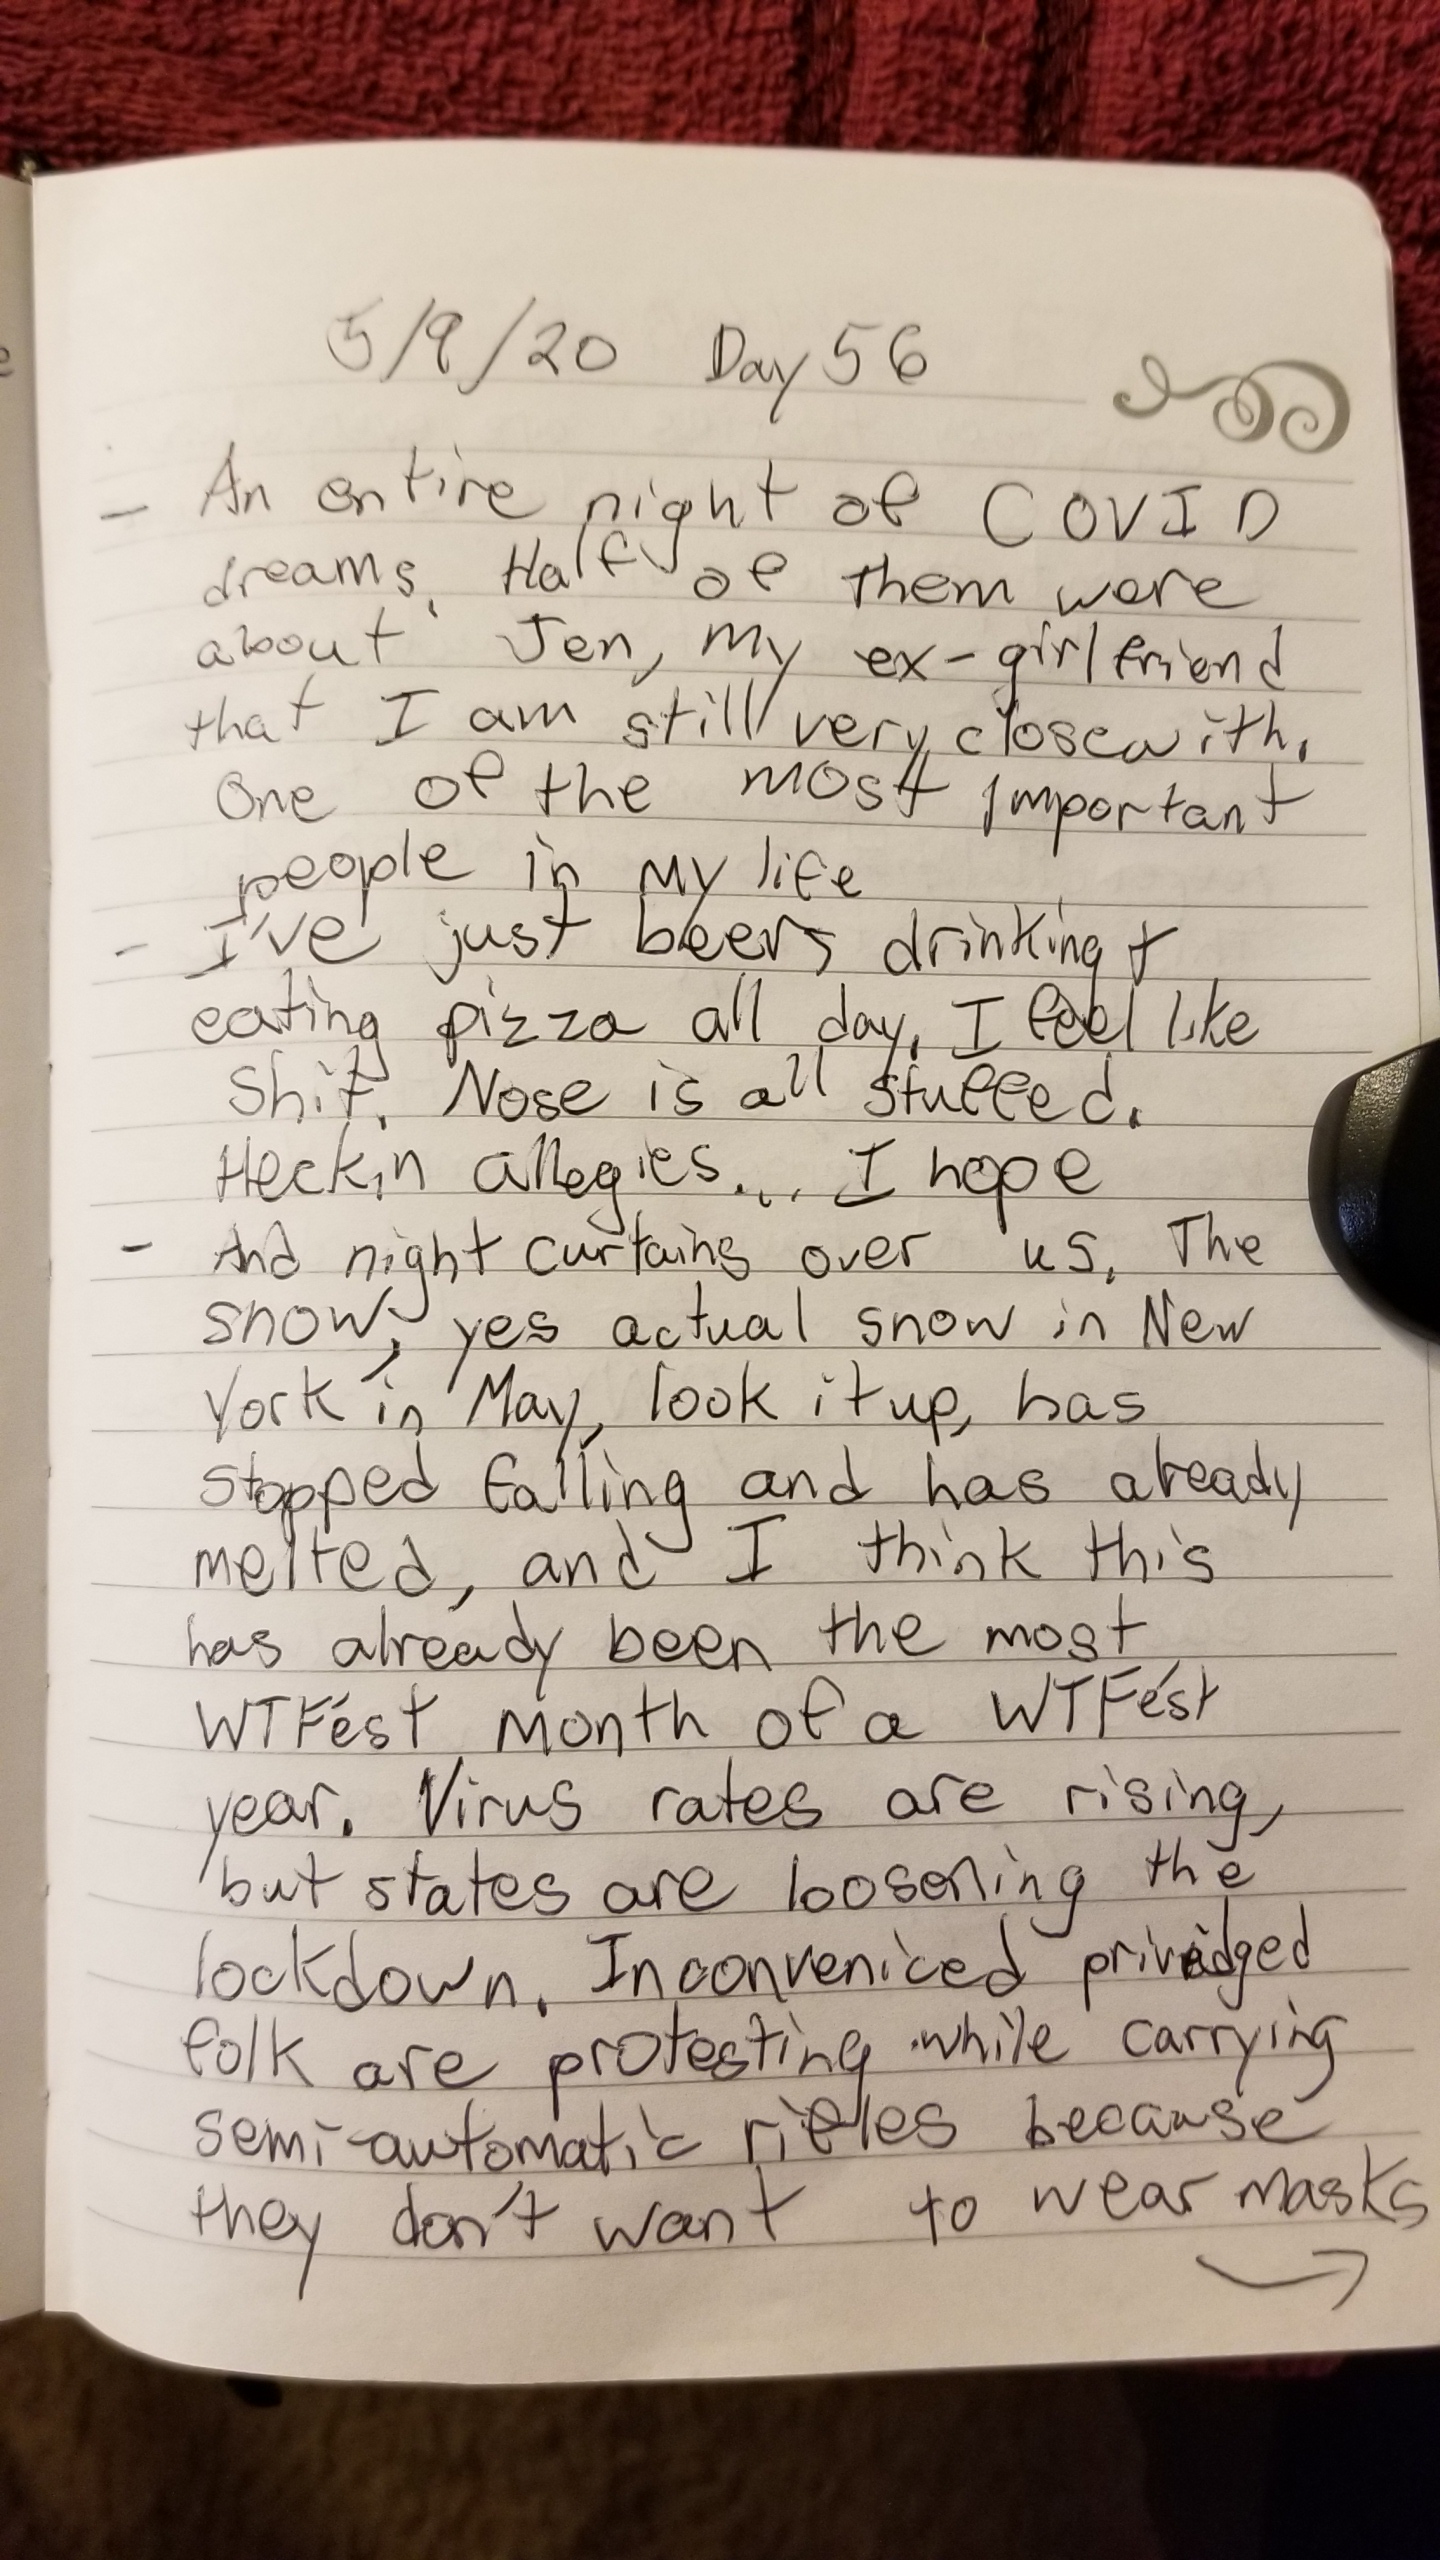 5/9/20 Day 56
- An entire night of COVID
dreams. Half of them were
about Jen, my ex-girlfriend
that I am still very close with.
One of the most important
people in my life
- I've just beers drinking +
eating pizza all day. I feel like
Shit. Nose is all stuffed.
Heckin allegies... I hope
- And night curtains over us. The
snow, yes actual snow in New
York in May, look it up, has
stopped falling and has already
melted, and I think this
has already been the most
WTFést month of a WTFést
year. Virus rates are rising,
but states are loosening the
lockdown. Inconveniced
folk are protesting while carrying
semi-automatic rifles because
they don't want to wear masks
→